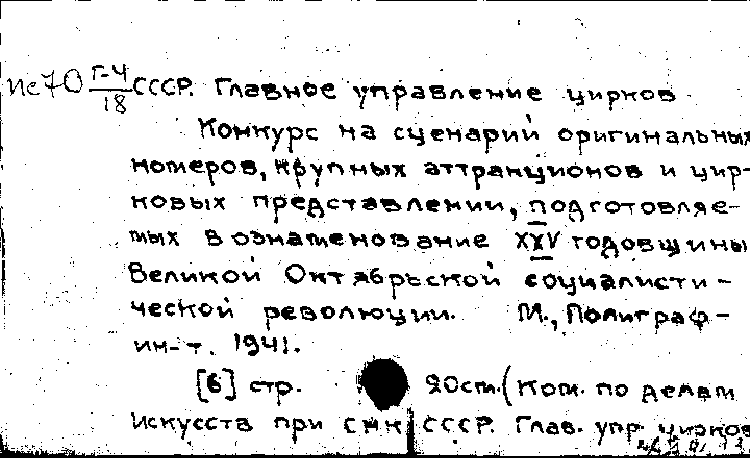 Ис70 Г-4/18 СССР. Главное управление цирков
Конкурс на сценарий оригинальных
номеров, крупных аттракционов и цир-
ковых представлений, подготовляе-
мых в ознаменование XXV годовщины
Великой Октябрьской социалисти-
ческой революции. М., Полиграф-
ин-т. 1941.
[6] стр. 20см. (Ком. по делам
Искусств при СНК СССР. Глав. упр. цирков